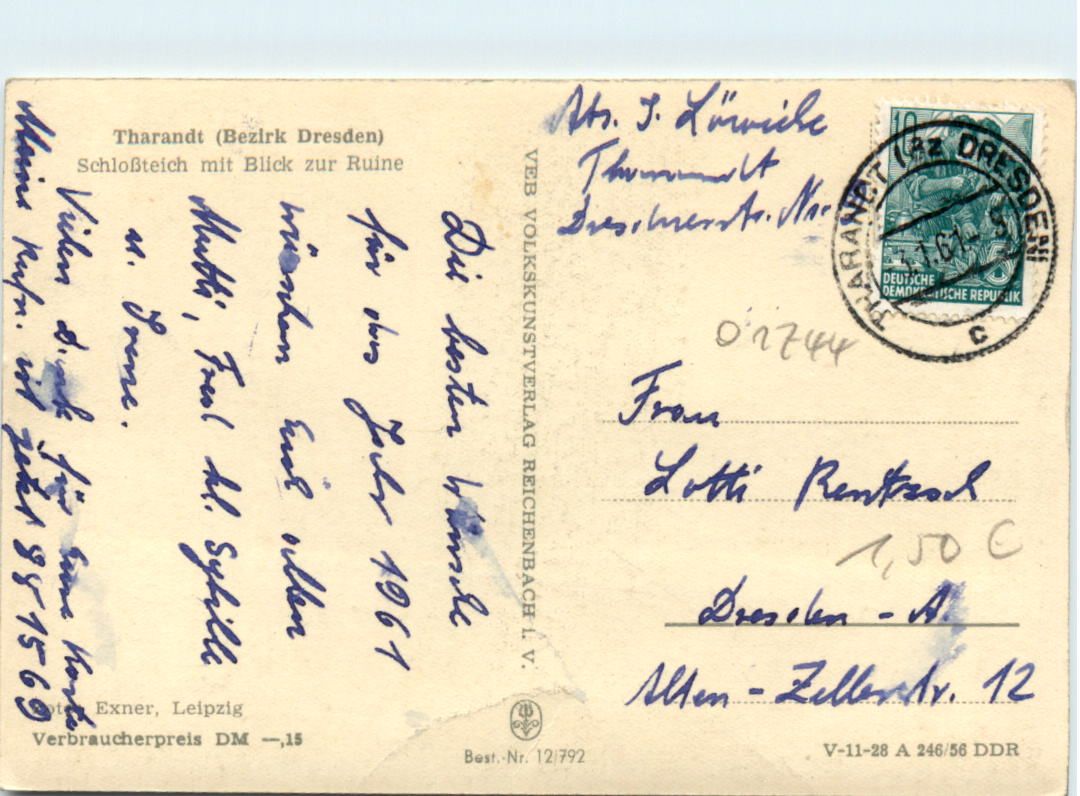 Tharandt (Bezirk Dresden)
Schloßteich mit Blick zur Ruine
Die besten Wünsche
für das Jahr 1961
wünschen Euch allen
Mutti, Fred kl. Sybille
u. Irene.
Vielen Dank für Eure Karte
Meine Rufnr. ist jetzt 881569
Foto: Exner, Leipzig
Verbraucherpreis DM —,15
VEB VOLKSKUNSTVERLAG REICHENBACH I. V.
Best.-Nr. 12/792
Abs. I.
Tharandt
Dresdnerstr.
10
DEUTSCHE
DEMOKRATISCHE REPUBLIK
THARANDT (BZ DRESDEN)
c
01744
Frau
Lotti Rentzsch
1,50 €
Dresden - A.
Alten - Zellerstr. 12
V-11-28 A 246/56 DDR